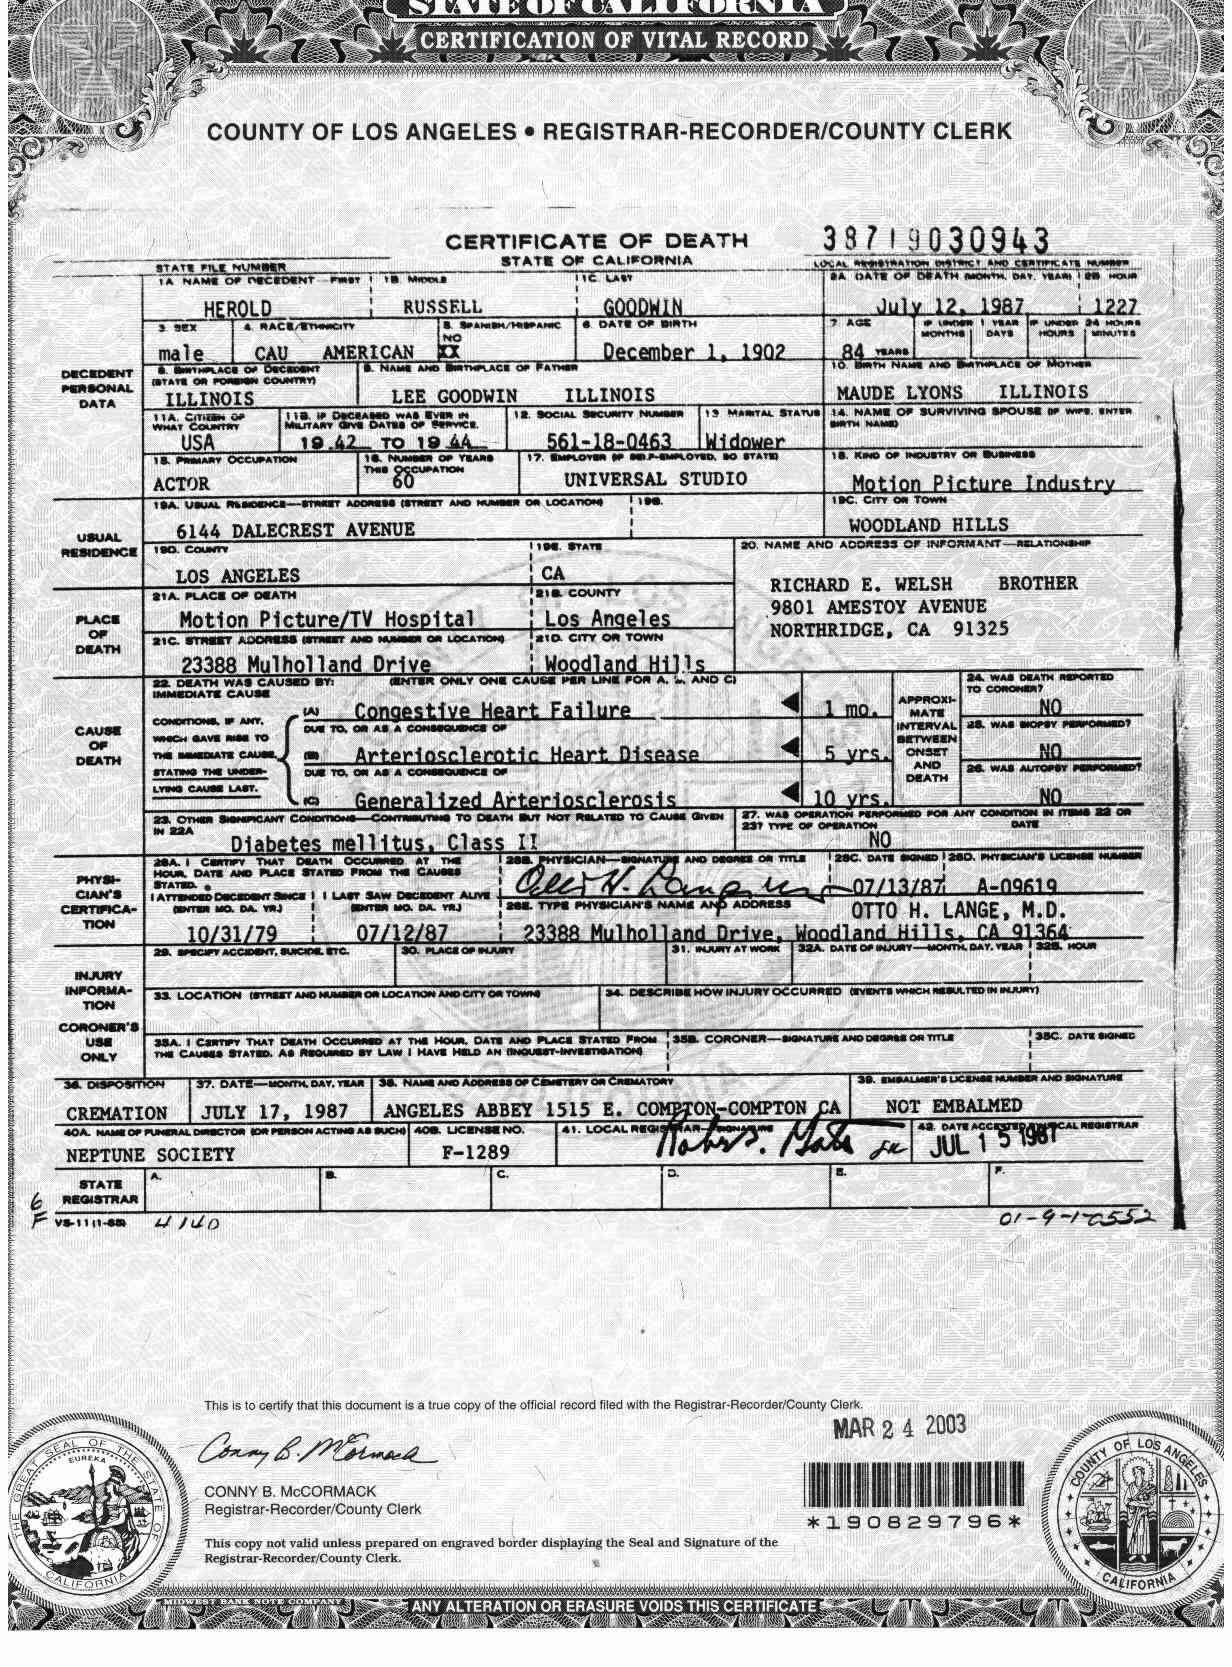 STATE OF CALIFORNIA
CERTIFICATION OF VITAL RECORD
COUNTY OF LOS ANGELES • REGISTRAR-RECORDER/COUNTY CLERK
CERTIFICATE OF DEATH 38719030943
STATE OF CALIFORNIA
STATE FILE NUMBER LOCAL REGISTRATION DISTRICT AND CERTIFICATE NUMBER
1A NAME OF DECEDENT—FIRST 1B. MIDDLE 1C. LAST 2A. DATE OF DEATH (MONTH, DAY, YEAR) 2B HOUR
HEROLD RUSSELL GOODWIN July 12, 1987 1227
3. SEX 4. RACE/ETHNICITY 5. SPANISH/HISPANIC 6. DATE OF BIRTH 7. AGE IF UNDER 1 YEAR IF UNDER 24 HOURS
NO MONTHS DAYS HOURS MINUTES
male CAU AMERICAN XX December 1, 1902 84 YEARS
DECEDENT PERSONAL DATA
8. BIRTHPLACE OF DECEDENT (STATE OR FOREIGN COUNTRY) 9. NAME AND BIRTHPLACE OF FATHER 10. BIRTH NAME AND BIRTHPLACE OF MOTHER
ILLINOIS LEE GOODWIN ILLINOIS MAUDE LYONS ILLINOIS
11A. CITIZEN OF WHAT COUNTRY 11B. IF DECEASED WAS EVER IN MILITARY GIVE DATES OF SERVICE. 12. SOCIAL SECURITY NUMBER 13. MARITAL STATUS 14. NAME OF SURVIVING SPOUSE (IF WIFE, ENTER BIRTH NAME)
USA 19 42 TO 19 44 561-18-0463 Widower
15. PRIMARY OCCUPATION 16. NUMBER OF YEARS THIS OCCUPATION 17. EMPLOYER (IF SELF-EMPLOYED, SO STATE) 18. KIND OF INDUSTRY OR BUSINESS
ACTOR 60 UNIVERSAL STUDIO Motion Picture Industry
USUAL RESIDENCE
19A. USUAL RESIDENCE—STREET ADDRESS (STREET AND NUMBER OR LOCATION) 19B. 19C. CITY OR TOWN
6144 DALECREST AVENUE WOODLAND HILLS
19D. COUNTY 19E. STATE 20. NAME AND ADDRESS OF INFORMANT—RELATIONSHIP
LOS ANGELES CA
RICHARD E. WELSH BROTHER
9801 AMESTOY AVENUE
NORTHRIDGE, CA 91325
PLACE OF DEATH
21A. PLACE OF DEATH 21B. COUNTY
Motion Picture/TV Hospital Los Angeles
21C. STREET ADDRESS (STREET AND NUMBER OR LOCATION) 21D. CITY OR TOWN
23388 Mulholland Drive Woodland Hills
CAUSE OF DEATH
22. DEATH WAS CAUSED BY: (ENTER ONLY ONE CAUSE PER LINE FOR A, B, AND C)
IMMEDIATE CAUSE
CONDITIONS, IF ANY, WHICH GAVE RISE TO THE IMMEDIATE CAUSE, STATING THE UNDERLYING CAUSE LAST.
(A) Congestive Heart Failure 1 mo.
DUE TO, OR AS A CONSEQUENCE OF
(B) Arteriosclerotic Heart Disease 5 yrs.
DUE TO, OR AS A CONSEQUENCE OF
(C) Generalized Arteriosclerosis 10 yrs.
APPROXIMATE INTERVAL BETWEEN ONSET AND DEATH
24. WAS DEATH REPORTED TO CORONER?
NO
25. WAS BIOPSY PERFORMED?
NO
26. WAS AUTOPSY PERFORMED?
NO
23. OTHER SIGNIFICANT CONDITIONS—CONTRIBUTING TO DEATH BUT NOT RELATED TO CAUSE GIVEN IN 22A 27. WAS OPERATION PERFORMED FOR ANY CONDITION IN ITEMS 22 OR 23? TYPE OF OPERATION DATE
Diabetes mellitus, Class II NO
PHYSICIAN'S CERTIFICATION
28A. I CERTIFY THAT DEATH OCCURRED AT THE HOUR, DATE AND PLACE STATED FROM THE CAUSES STATED.
28B. PHYSICIAN—SIGNATURE AND DEGREE OR TITLE 28C. DATE SIGNED 28D. PHYSICIAN'S LICENSE NUMBER
07/13/87 A-09619
I ATTENDED DECEDENT SINCE (ENTER MO. DA. YR.) I LAST SAW DECEDENT ALIVE (ENTER MO. DA. YR.) 28E. TYPE PHYSICIAN'S NAME AND ADDRESS OTTO H. LANGE, M.D.
10/31/79 07/12/87 23388 Mulholland Drive, Woodland Hills, CA 91364
INJURY INFORMATION
29. SPECIFY ACCIDENT, SUICIDE, ETC. 30. PLACE OF INJURY 31. INJURY AT WORK 32A. DATE OF INJURY—MONTH, DAY, YEAR 32B. HOUR
33. LOCATION (STREET AND NUMBER OR LOCATION AND CITY OR TOWN) 34. DESCRIBE HOW INJURY OCCURRED (EVENTS WHICH RESULTED IN INJURY)
CORONER'S USE ONLY
35A. I CERTIFY THAT DEATH OCCURRED AT THE HOUR, DATE AND PLACE STATED FROM THE CAUSES STATED, AS REQUIRED BY LAW I HAVE HELD AN (INQUEST-INVESTIGATION) 35B. CORONER—SIGNATURE AND DEGREE OR TITLE 35C. DATE SIGNED
36. DISPOSITION 37. DATE—MONTH, DAY, YEAR 38. NAME AND ADDRESS OF CEMETERY OR CREMATORY 39. EMBALMER'S LICENSE NUMBER AND SIGNATURE
CREMATION JULY 17, 1987 ANGELES ABBEY 1515 E. COMPTON-COMPTON CA NOT EMBALMED
40A. NAME OF FUNERAL DIRECTOR (OR PERSON ACTING AS SUCH) 40B. LICENSE NO. 41. LOCAL REGISTRAR—SIGNATURE 42. DATE ACCEPTED BY LOCAL REGISTRAR
NEPTUNE SOCIETY F-1289 JUL 15 1987
STATE REGISTRAR A. B. C. D. E. F.
6
F VS-11 (1-85) 4140 01-9-1-0552
This is to certify that this document is a true copy of the official record filed with the Registrar-Recorder/County Clerk.
MAR 24 2003
Conny B. McCormack
CONNY B. McCORMACK
Registrar-Recorder/County Clerk
*190829796*
This copy not valid unless prepared on engraved border displaying the Seal and Signature of the
Registrar-Recorder/County Clerk.
THE GREAT SEAL OF THE STATE OF CALIFORNIA
EUREKA
COUNTY OF LOS ANGELES
CALIFORNIA
MIDWEST BANK NOTE COMPANY
ANY ALTERATION OR ERASURE VOIDS THIS CERTIFICATE